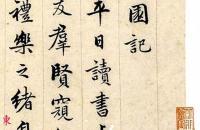 國記
平日讀書
友羣賢窺
禮樂之緒
東